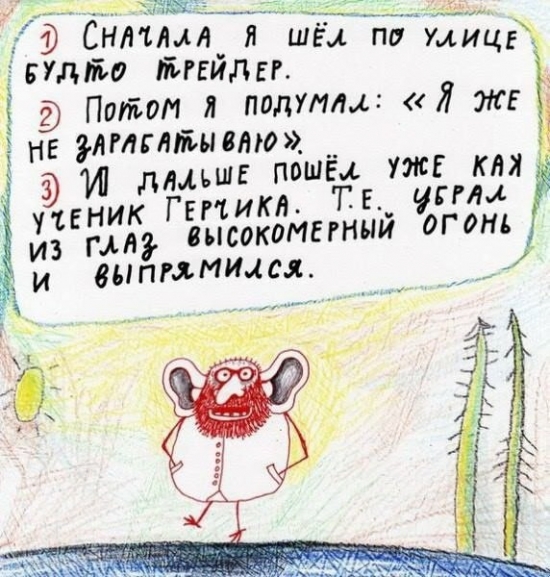 1) СНАЧАЛА Я ШЁЛ ПО УЛИЦЕ
БУДТО ТРЕЙДЕР.
2) ПОТОМ Я ПОДУМАЛ: «Я ЖЕ
НЕ ЗАРАБАТЫВАЮ».
3) И ДАЛЬШЕ ПОШЁЛ УЖЕ КАК
УЧЕНИК ГЕРЧИКА. Т.Е. УБРАЛ
ИЗ ГЛАЗ ВЫСОКОМЕРНЫЙ ОГОНЬ
И ВЫПРЯМИЛСЯ.